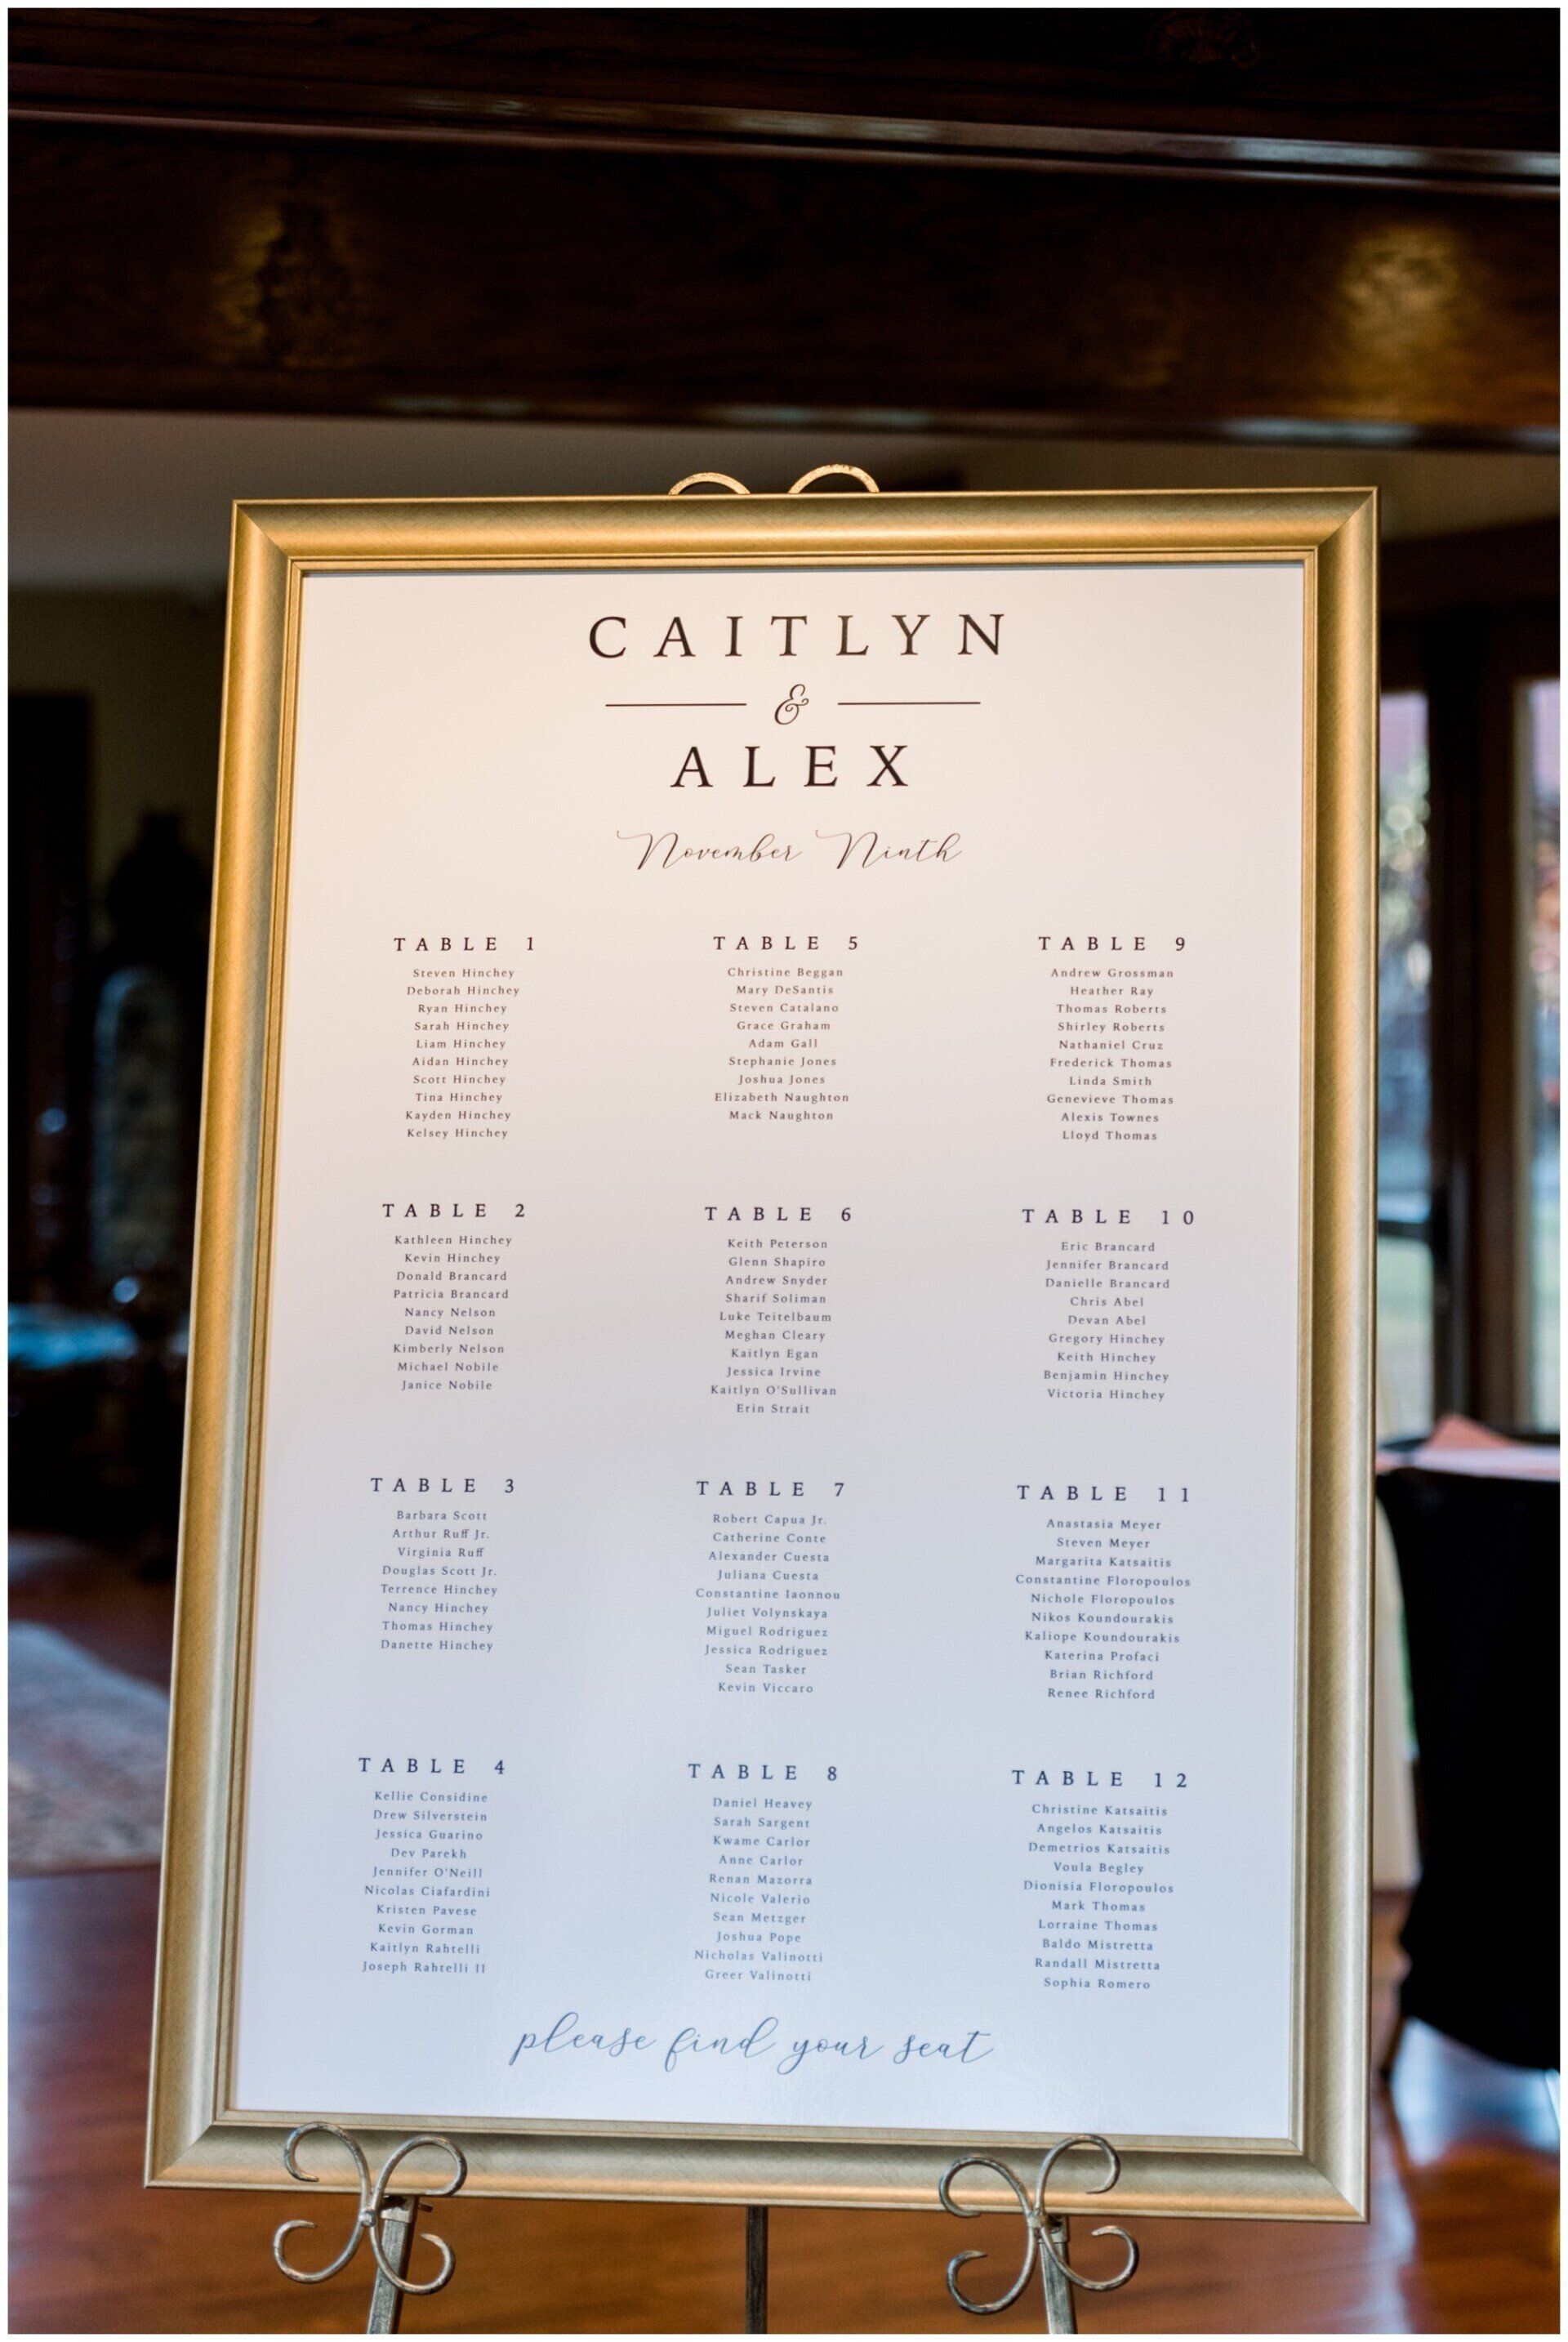 CAITLYN
&
ALEX
November Ninth
TABLE 1
Steven Hinchey
Deborah Hinchey
Ryan Hinchey
Sarah Hinchey
Liam Hinchey
Aidan Hinchey
Scott Hinchey
Tina Hinchey
Kayden Hinchey
Kelsey Hinchey
TABLE 2
Kathleen Hinchey
Kevin Hinchey
Donald Brancard
Patricia Brancard
Nancy Nelson
David Nelson
Kimberly Nelson
Michael Nobile
Janice Nobile
TABLE 3
Barbara Scott
Arthur Ruff Jr.
Virginia Ruff
Douglas Scott Jr.
Terrence Hinchey
Nancy Hinchey
Thomas Hinchey
Danette Hinchey
TABLE 4
Kellie Considine
Drew Silverstein
Jessica Guarino
Dev Parekh
Jennifer O'Neill
Nicolas Ciafardini
Kristen Pavese
Kevin Gorman
Kaitlyn Rahtelli
Joseph Rahtelli II
TABLE 5
Christine Beggan
Mary DeSantis
Steven Catalano
Grace Graham
Adam Gall
Stephanie Jones
Joshua Jones
Elizabeth Naughton
Mack Naughton
TABLE 6
Keith Peterson
Glenn Shapiro
Andrew Snyder
Sharif Soliman
Luke Teitelbaum
Meghan Cleary
Kaitlyn Egan
Jessica Irvine
Kaitlyn O'Sullivan
Erin Strait
TABLE 7
Robert Capua Jr.
Catherine Conte
Alexander Cuesta
Juliana Cuesta
Constantine Iaonnou
Juliet Volynskaya
Miguel Rodriguez
Jessica Rodriguez
Sean Tasker
Kevin Viccaro
TABLE 8
Daniel Heavey
Sarah Sargent
Kwame Carlor
Anne Carlor
Renan Mazorra
Nicole Valerio
Sean Metzger
Joshua Pope
Nicholas Valinotti
Greer Valinotti
TABLE 9
Andrew Grossman
Heather Ray
Thomas Roberts
Shirley Roberts
Nathaniel Cruz
Frederick Thomas
Linda Smith
Genevieve Thomas
Alexis Townes
Lloyd Thomas
TABLE 10
Eric Brancard
Jennifer Brancard
Danielle Brancard
Chris Abel
Devan Abel
Gregory Hinchey
Keith Hinchey
Benjamin Hinchey
Victoria Hinchey
TABLE 11
Anastasia Meyer
Steven Meyer
Margarita Katsaitis
Constantine Floropoulos
Nichole Floropoulos
Nikos Koundourakis
Kaliope Koundourakis
Katerina Profaci
Brian Richford
Renee Richford
TABLE 12
Christine Katsaitis
Angelos Katsaitis
Demetrios Katsaitis
Voula Begley
Dionisia Floropoulos
Mark Thomas
Lorraine Thomas
Baldo Mistretta
Randall Mistretta
Sophia Romero
please find your seat